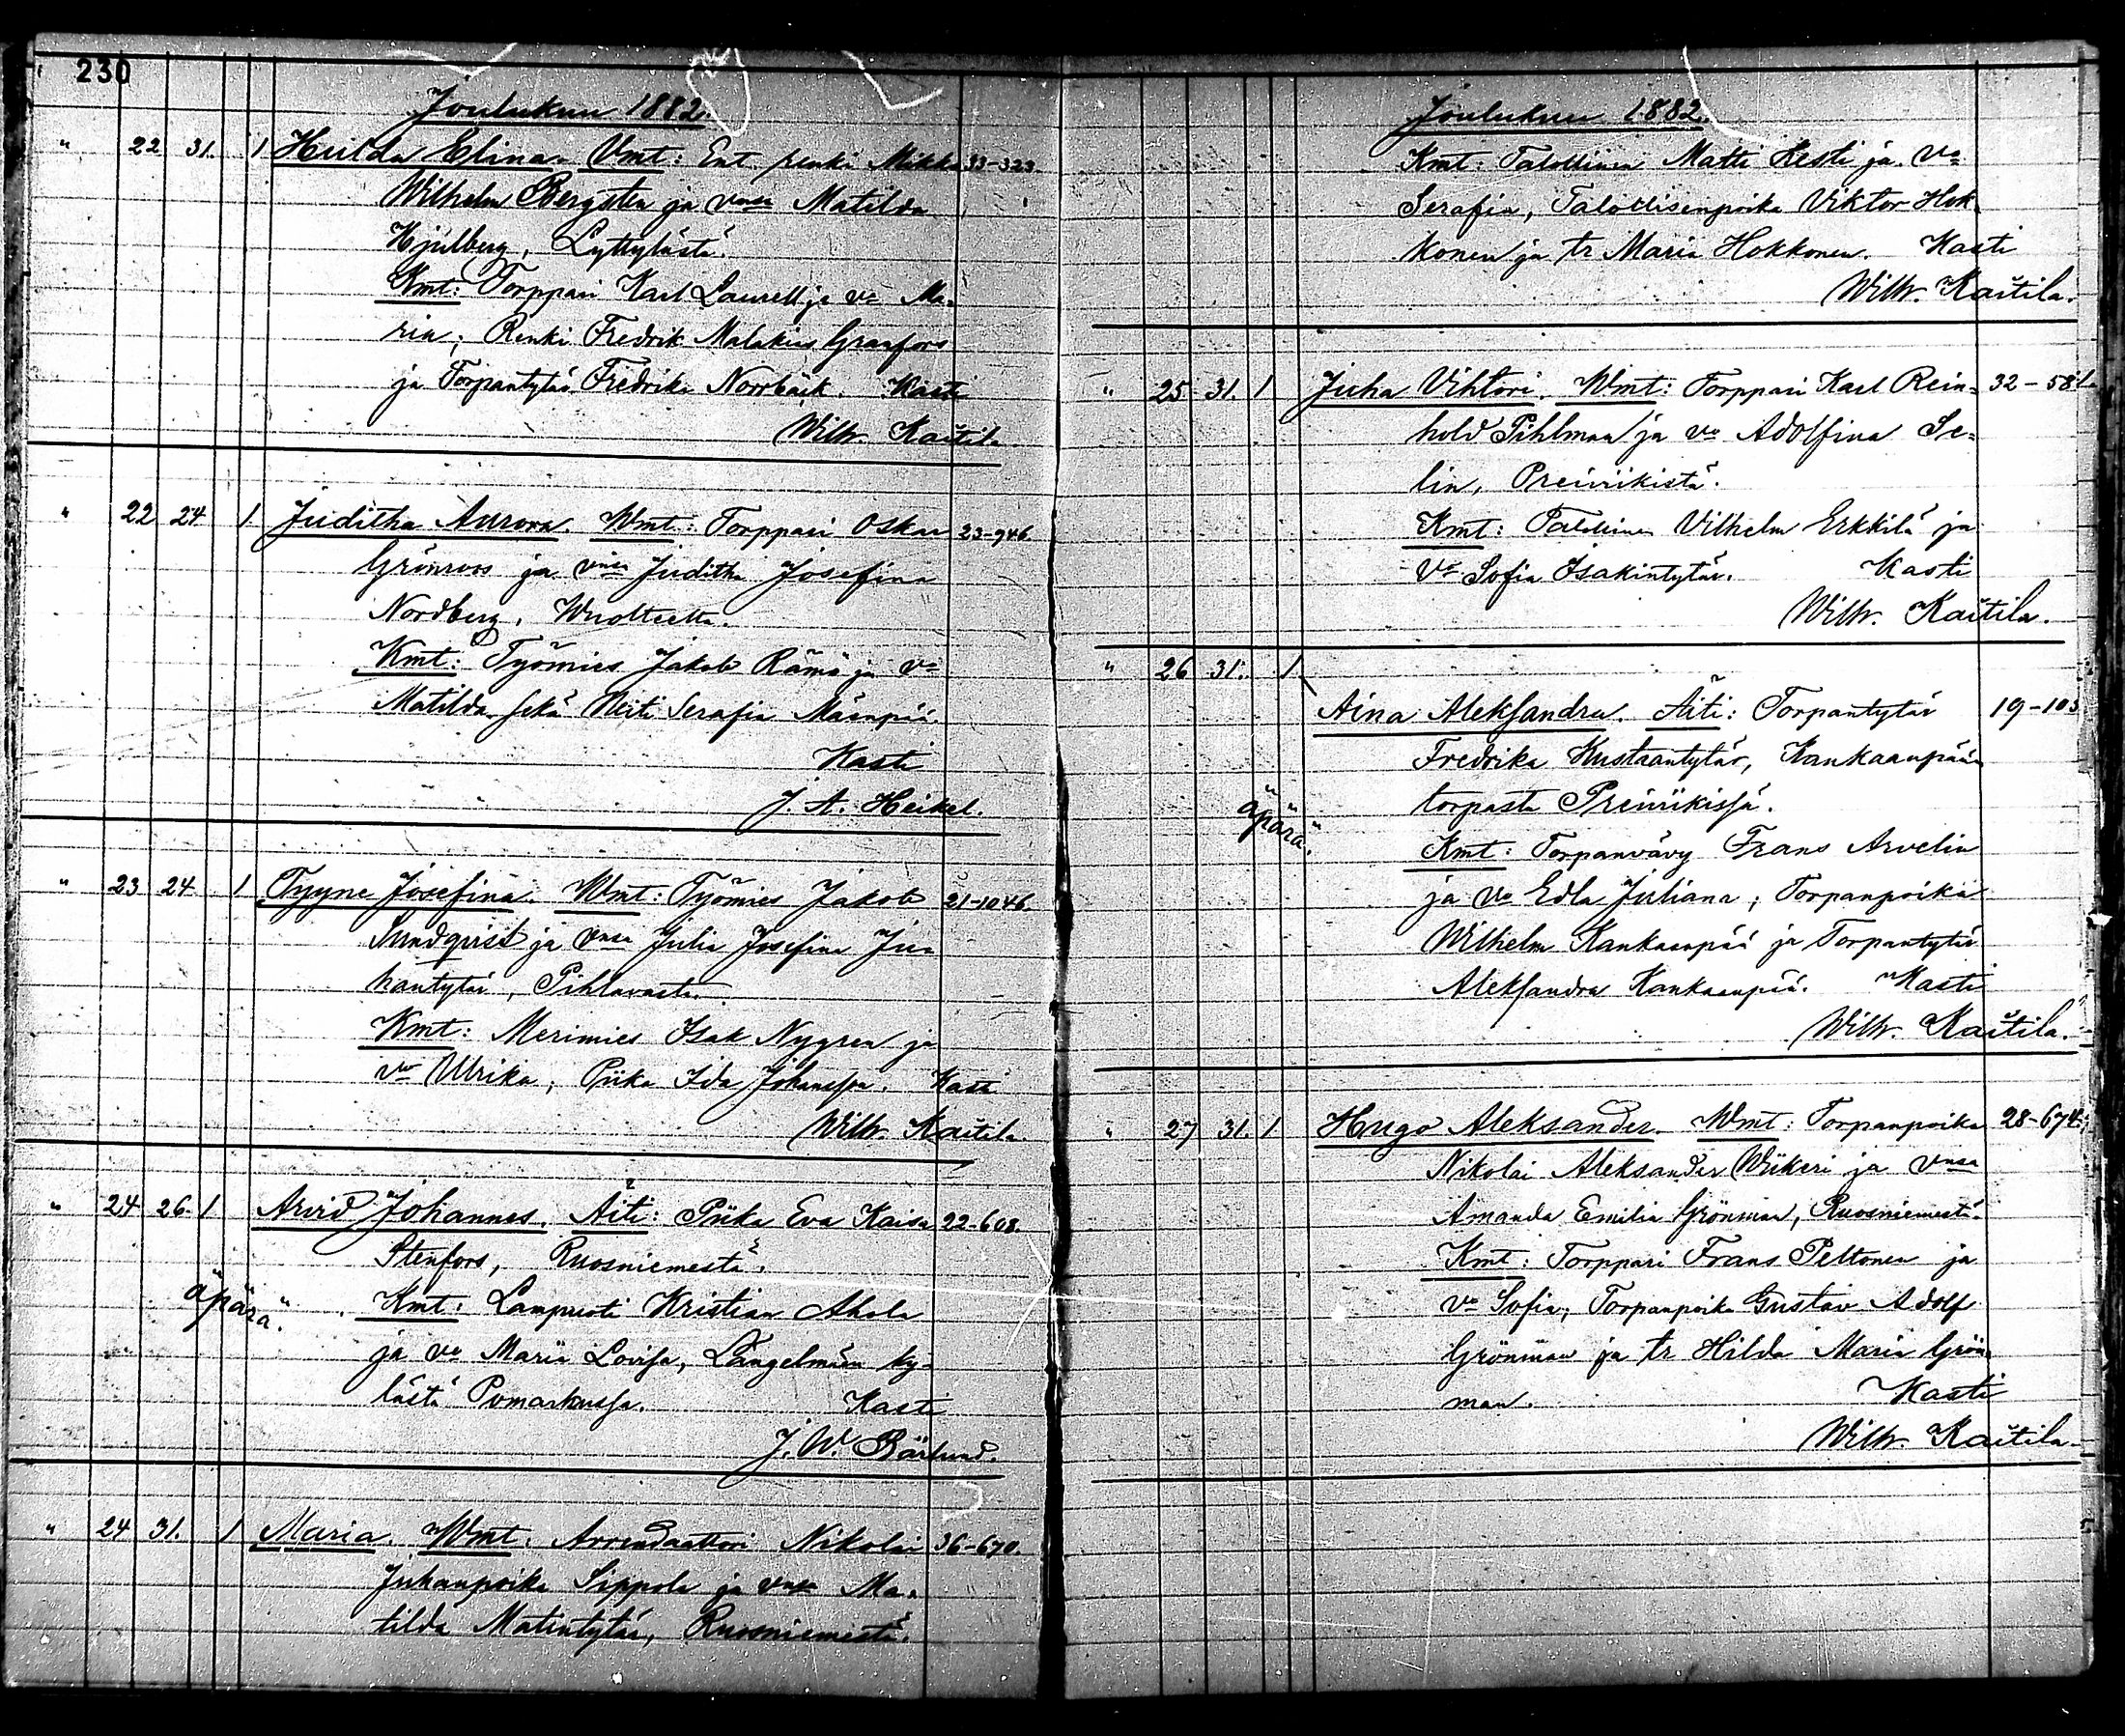 230
Joulukuu 1882.
" 22 31. 1 Hilda Elina. Vmt: Ent. renki Mikko 33-323.
Wilhelm Bergsten ja vnsa Matilda
Hjulberg, Lyttylästä.
Kmt: Torppari Karl Laurell ja vo Ma-
ria; Renki Fredrik Malakias Granfors
ja Torpantytär Fredrika Norrbäck. Kasti
Wilh. Kaitila.
" 22 24. 1. Juditha Aurora. Wmt: Torppari Oskar 23-946.
Grönroos ja vnsa Juditha Josefina
Nordberg,
Kmt: Työmies Jakob Rämö ja vo
Matilda sekä Neiti Serafia Mäenpää.
Kasti
J. A. Heikel.
" 23 24. 1 Tyyne Josefina. Wmt: Työmies Jakob 21-1046.
Sundqvist ja vnsa Julia Josefina Ju-
hantytär, Pihlavasta.
Kmt: Merimies Isak Nygren ja
vo Ulrika; Piika Ida Johansson. Kasti
Wilh. Kaitila.
" 24 26. 1 Arvid Johannes. Äiti: Piika Eva Kaisa 22-608.
Stenfors, Ruosniemestä.
äpärä. Kmt: Lampuoti Kristian Ahola
ja vo Maria Lovisa, Längelmäen ky-
lästä Pomarkussa. Kasti
J. W. Bärlund.
" 24 31. 1 Maria. Wmt. Arrendaattori Nikolai 36-670.
Juhanpoika Sippola ja vnsa Ma-
tilda Matintytär, Ruosniemestä.
Joulukuu 1882.
Kmt: Talollinen Matti Kesti ja vo
Serafia, Talollisenpoika Viktor Hok-
konen ja tr Maria Hokkonen. Kasti
Wilh. Kaitila.
" 25 31. 1 Juha Vihtori. Wmt: Torppari Karl Rein- 32-581.
hold Pihlman ja vo Adolfina Se-
lin, Preiviikistä.
Kmt: Talollinen Vilhelm Erkkilä ja
vo Sofia Isakintytär. Kasti
Wilh. Kaitila.
" 26 31. 1
Aina Aleksandra. Äiti: Torpantytär 19-103
Fredrika Kustaantytär, Kankaanpään
torpasta Preiviikissä.
äpärä.
Kmt: Torpanvävy Frans Arvelin
ja vo Edla Juliana; Torpanpoika
Wilhelm Kankaanpää ja Torpantytär
Aleksandra Kankaanpää. Kasti
Wilh. Kaitila.
" 27 31. 1 Hugo Aleksander. Wmt: Torpanpoika 28-674.
Nikolai Aleksander Wiikeri ja vnsa
Amanda Emilia Grönman, Ruosniemestä.
Kmt: Torppari Frans Peltonen ja
vo Sofia; Torpanpoika Gustav Adolf
Grönman ja tr Hilda Maria Grön-
man. Kasti
Wilh. Kaitila.